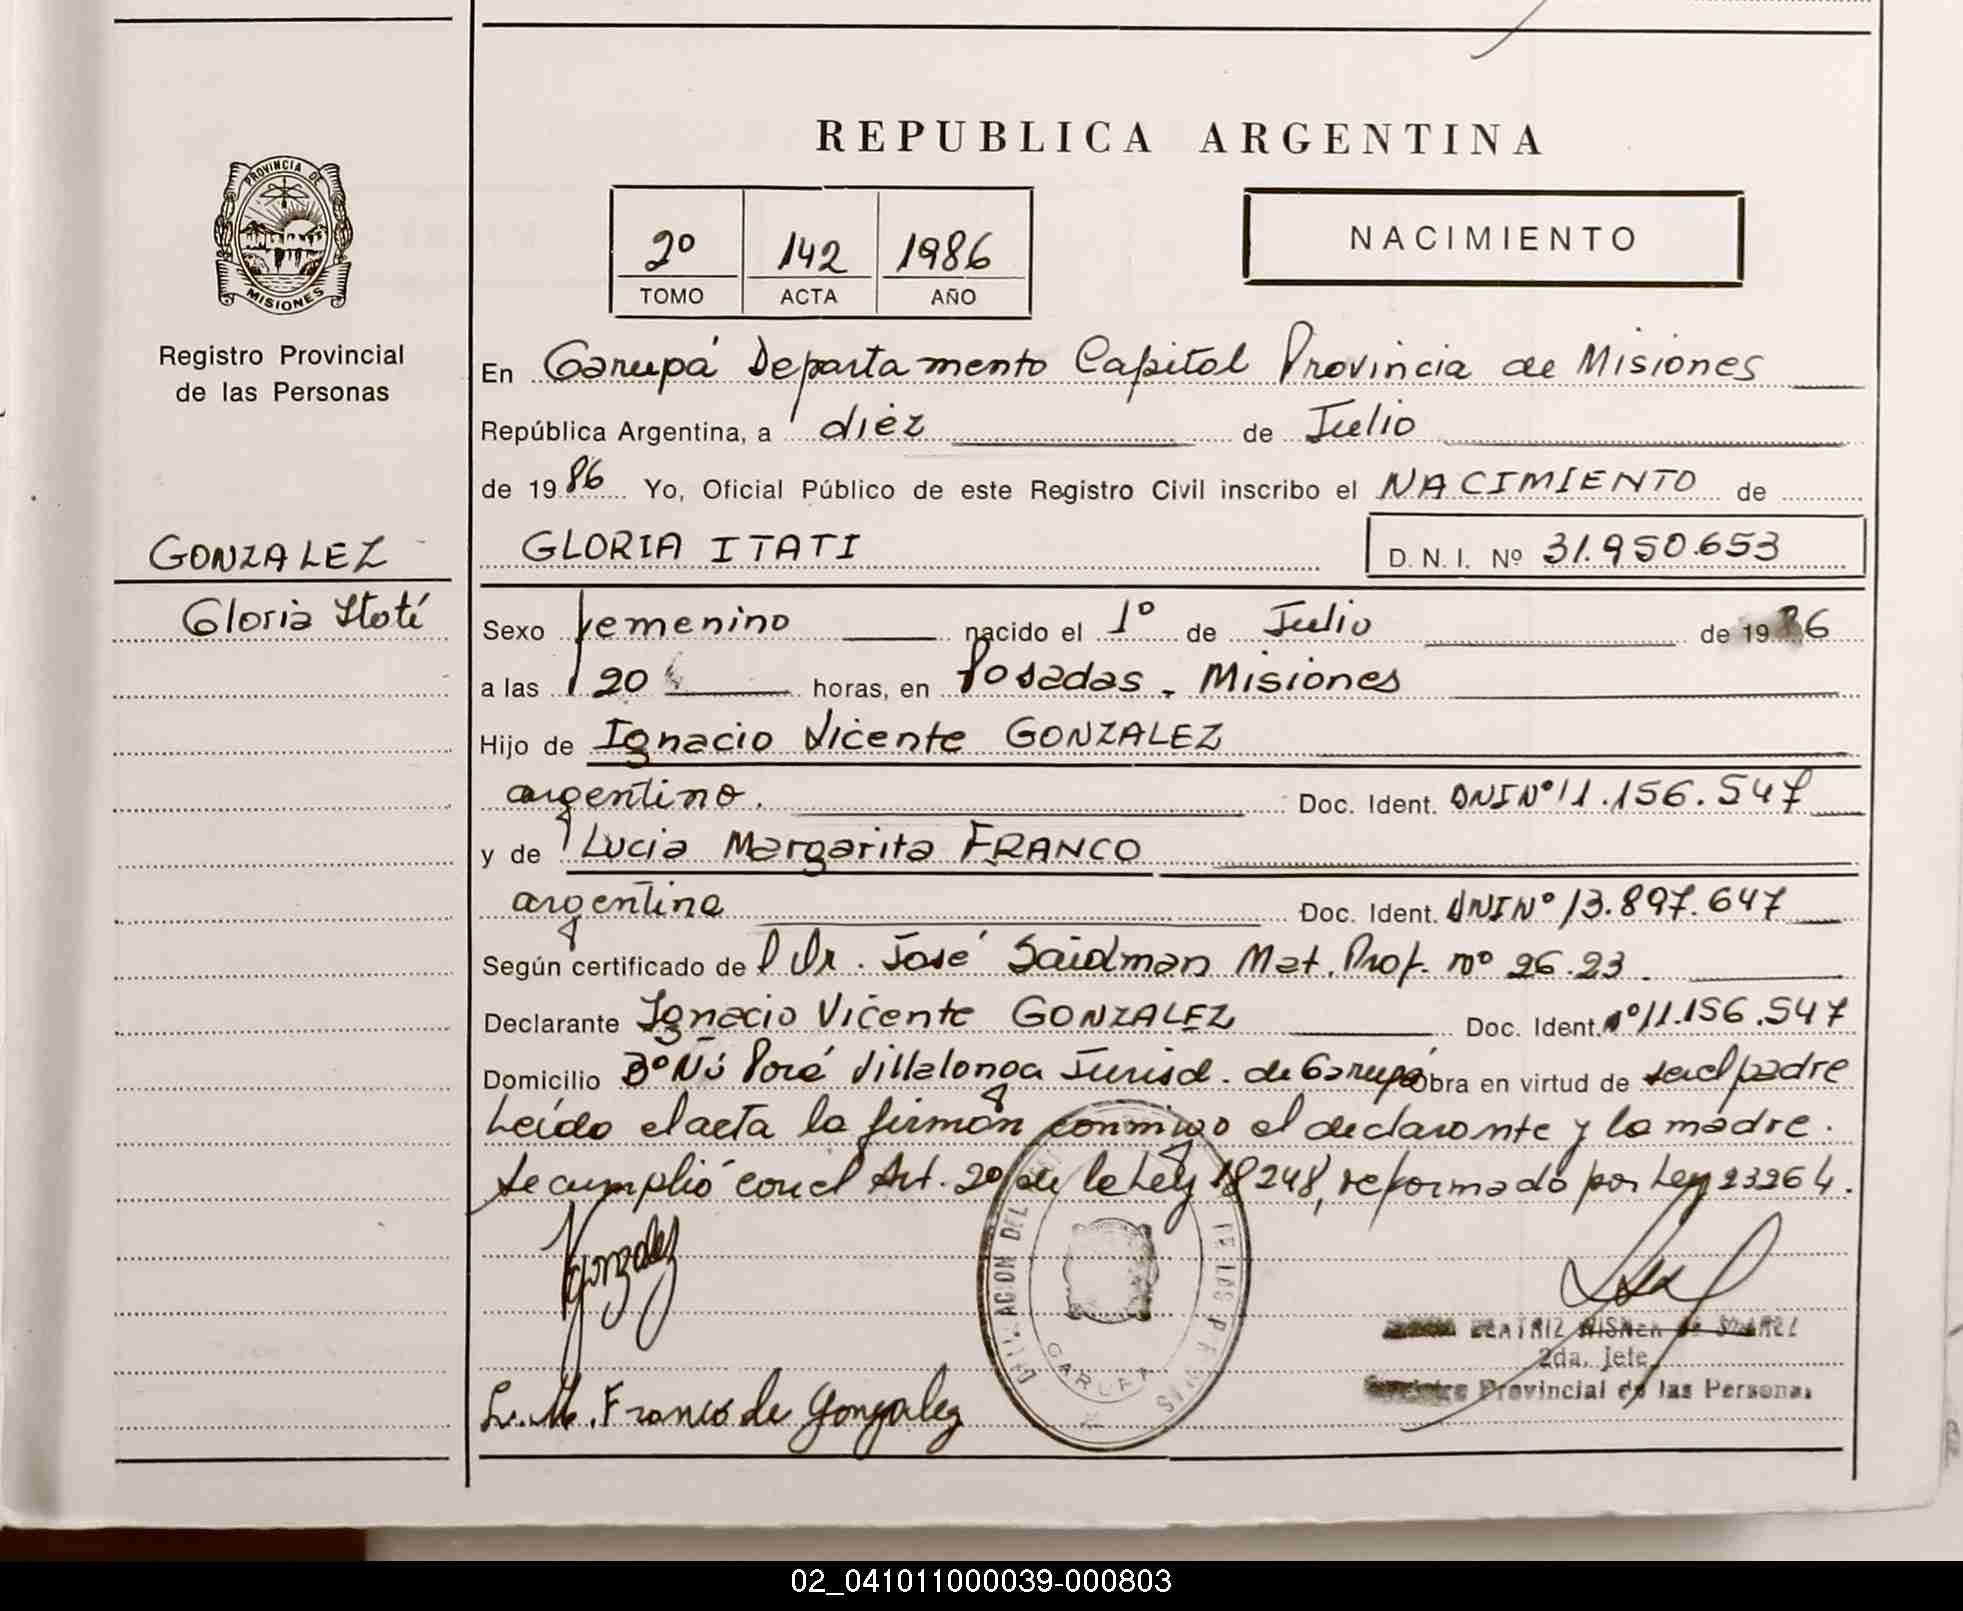 REPUBLICA ARGENTINA
PROVINCIA DE
MISIONES
Registro Provincial
de las Personas
2º 142 1986
TOMO ACTA AÑO
NACIMIENTO
En Garupá Departamento Capital Provincia de Misiones
República Argentina, a diez de Julio
de 1986 Yo, Oficial Público de este Registro Civil inscribo el NACIMIENTO de
GONZALEZ
Gloria Itatí
GLORIA ITATI D. N. I. Nº 31.950.653
Sexo femenino nacido el 1º de Julio de 1986
a las 20 horas, en Posadas - Misiones
Hijo de Ignacio Vicente GONZALEZ
argentino. Doc. Ident. DNI Nº 11.156.547
y de Lucia Margarita FRANCO
argentina Doc. Ident. DNI Nº 13.897.647
Según certificado de Dr. José Saidman Mat. Prof. nº 26.23.
Declarante Ignacio Vicente GONZALEZ Doc. Ident. nº 11.156.547
Domicilio Bº Villalonga Jurisd. de Garupá Obra en virtud de ser el padre
Leído el acta la firman conmigo el declarante y la madre.
Se cumplió con el Art. 2º de la Ley 18248, reformado por Ley 23264.
Gonzalez
DEL
DE LAS
GARUPA
BEATRIZ DE SUAREZ
2da. Jefe
Provincial de las Personas
L. M. Franco de Gonzalez
02_041011000039-000803